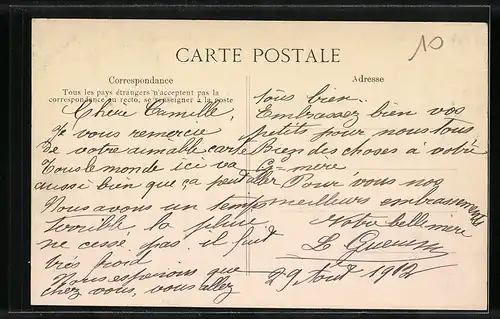 10
CARTE POSTALE
Correspondance
Tous les pays étrangers n'acceptent pas la
correspondance au recto, se renseigner à la poste
Adresse
Chère Camille,
Je vous remercie
de votre aimable carte
Tous le monde ici va
aussi bien que ça peut aller
Nous avons un temp
terrible, la pluie
ne cesse pas il fait
très froid
Nous espérions que
chez vous, vous allez
tous bien.
Embrassez bien vos
petits pour nous tous
Bien des choses à votre
G-mère
Pour vous nos
meilleurs embrassements
Votre belle mère
29 Aout 1912